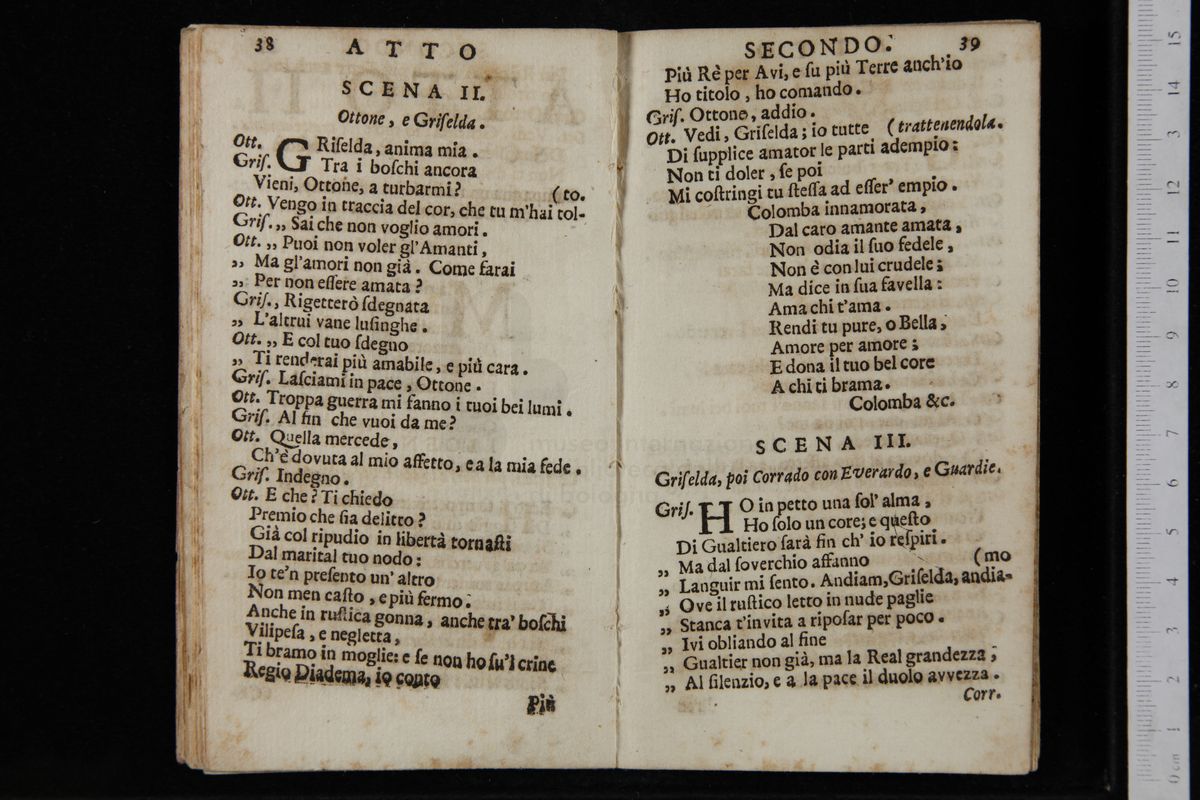 38 ATTO
SCENA II.
Ottone, e Griſelda.
Ott. GRiſelda, anima mia.
Griſ. Tra i boſchi ancora
Vieni, Ottone, a turbarmi? (to.
Ott. Vengo in traccia del cor, che tu m'hai tol-
Griſ. ,, Sai che non voglio amori.
Ott. ,, Puoi non voler gl'Amanti,
,, Ma gl'amori non già. Come farai
,, Per non eſſere amata?
Griſ. ,, Rigetterò ſdegnata
,, L'altrui vane luſinghe.
Ott. ,, E col tuo ſdegno
,, Ti renderai più amabile, e più cara.
Griſ. Laſciami in pace, Ottone.
Ott. Troppa guerra mi fanno i tuoi bei lumi.
Griſ. Al fin che vuoi da me?
Ott. Quella mercede,
Ch'è dovuta al mio affetto, e a la mia fede.
Griſ. Indegno.
Ott. E che? Ti chiedo
Premio che ſia delitto?
Già col ripudio in libertà tornaſti
Dal marital tuo nodo:
Io te'n preſento un' altro
Non men caſto, e più fermo.
Anche in ruſtica gonna, anche tra' boſchi
Vilipeſa, e negletta,
Ti bramo in moglie: e ſe non ho ſu'l crine
Regio Diadema, io conto
Più
SECONDO. 39
Più Rè per Avi, e ſu più Terre anch'io
Ho titolo, ho comando.
Griſ. Ottone, addio.
Ott. Vedi, Griſelda; io tutte (trattenendola.
Di ſupplice amator le parti adempio:
Non ti doler, ſe poi
Mi coſtringi tu ſteſſa ad eſſer' empio.
Colomba innamorata,
Dal caro amante amata,
Non odia il ſuo fedele,
Non è con lui crudele;
Ma dice in ſua favella:
Ama chi t'ama.
Rendi tu pure, o Bella,
Amore per amore;
E dona il tuo bel core
A chi ti brama.
Colomba &c.
SCENA III.
Griſelda, poi Corrado con Everardo, e Guardie.
Griſ. HO in petto una ſol' alma,
Ho ſolo un core; e queſto
Di Gualtiero ſarà fin ch' io reſpiri.
,, Ma dal ſoverchio affanno (mo
,, Languir mi ſento. Andiam, Griſelda, andia-
,, Ove il ruſtico letto in nude paglie
,, Stanca t'invita a ripoſar per poco.
,, Ivi obliando al fine
,, Gualtier non già, ma la Real grandezza;
,, Al ſilenzio, e a la pace il duolo avvezza.
Corr.